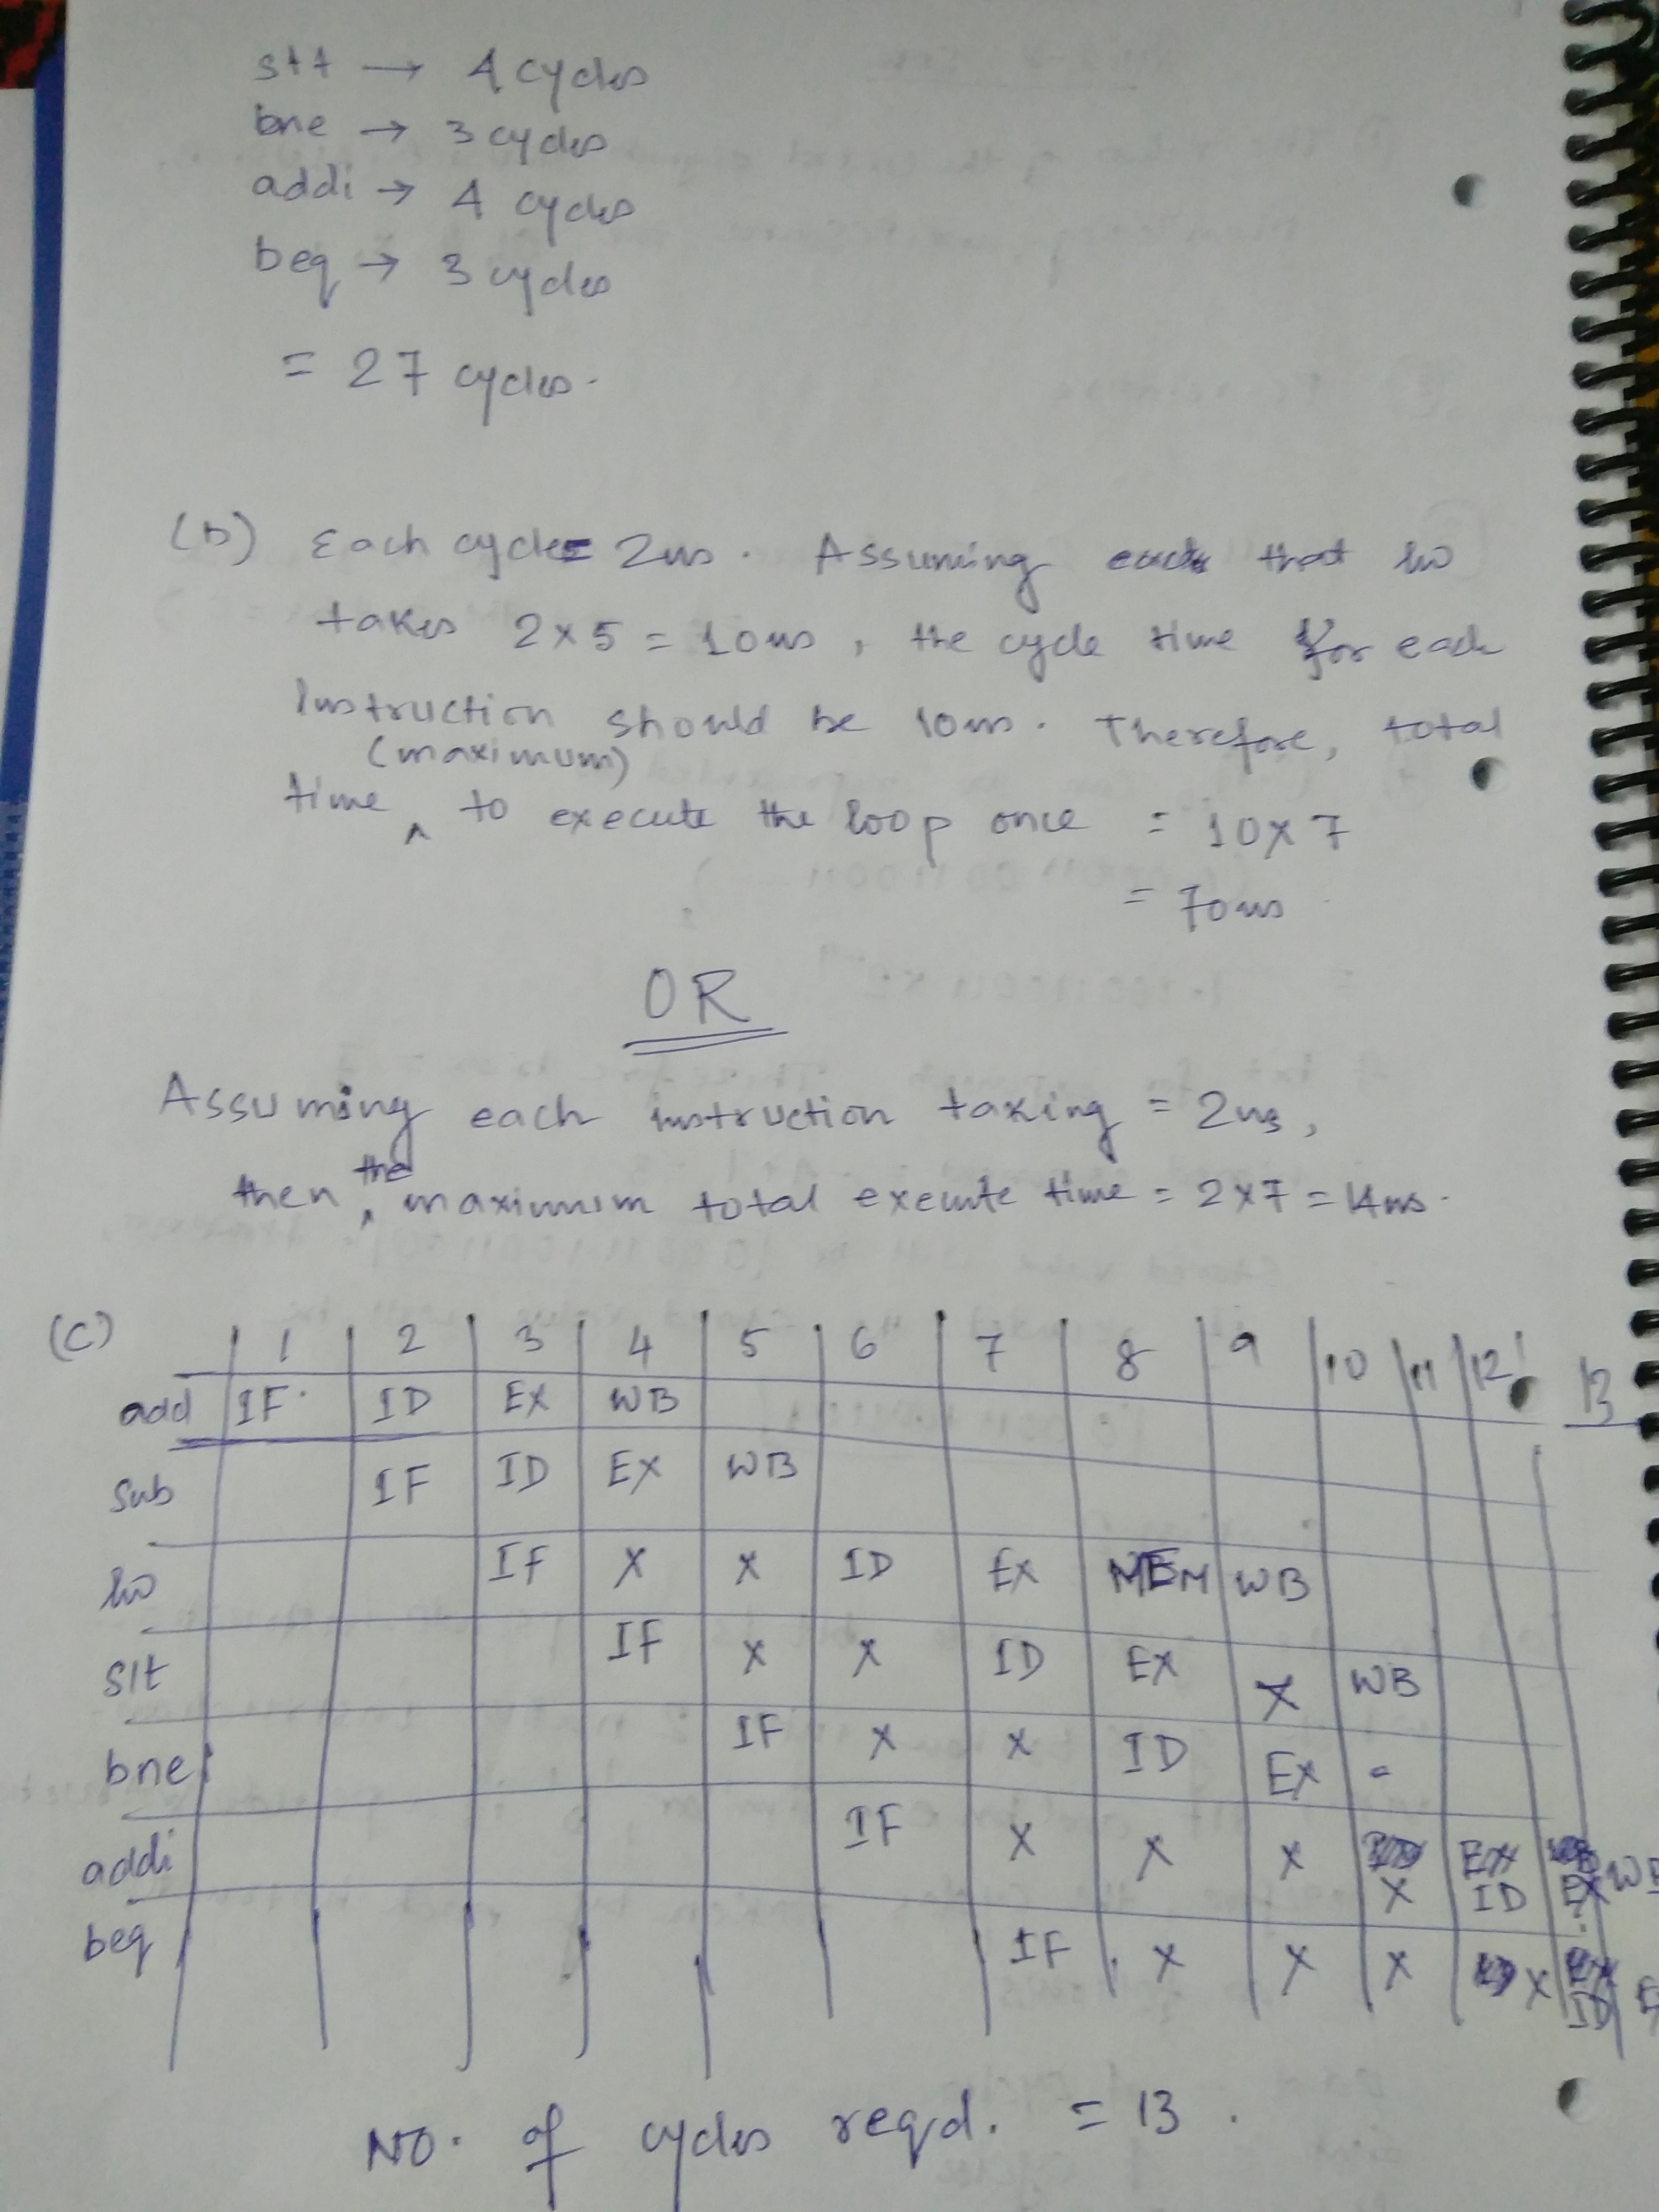 slt → 4 cycles
bne → 3 cycles
addi → 4 cycles
beq → 3 cycles
= 27 cycles.
(b) Each cycle = 2ns. Assuming that lw
takes 2x5 = 10ns, the cycle time for each
instruction should be 10ns. Therefore, total
(maximum)
time ^ to execute the loop once = 10x7
= 70ns
OR
Assuming each instruction taking = 2ns,
then ^ the maximum total execute time = 2x7 = 14ns.
(C) 1 2 3 4 5 6 7 8 9 10 11 12 13
add IF ID EX WB
sub IF ID EX WB
lw IF X X ID EX MEM WB
slt IF X X ID EX X WB
bne IF X X ID EX -
addi IF X X X X ID EX WB
beq IF X X X X ID E
NO. of cycles reqd. = 13.